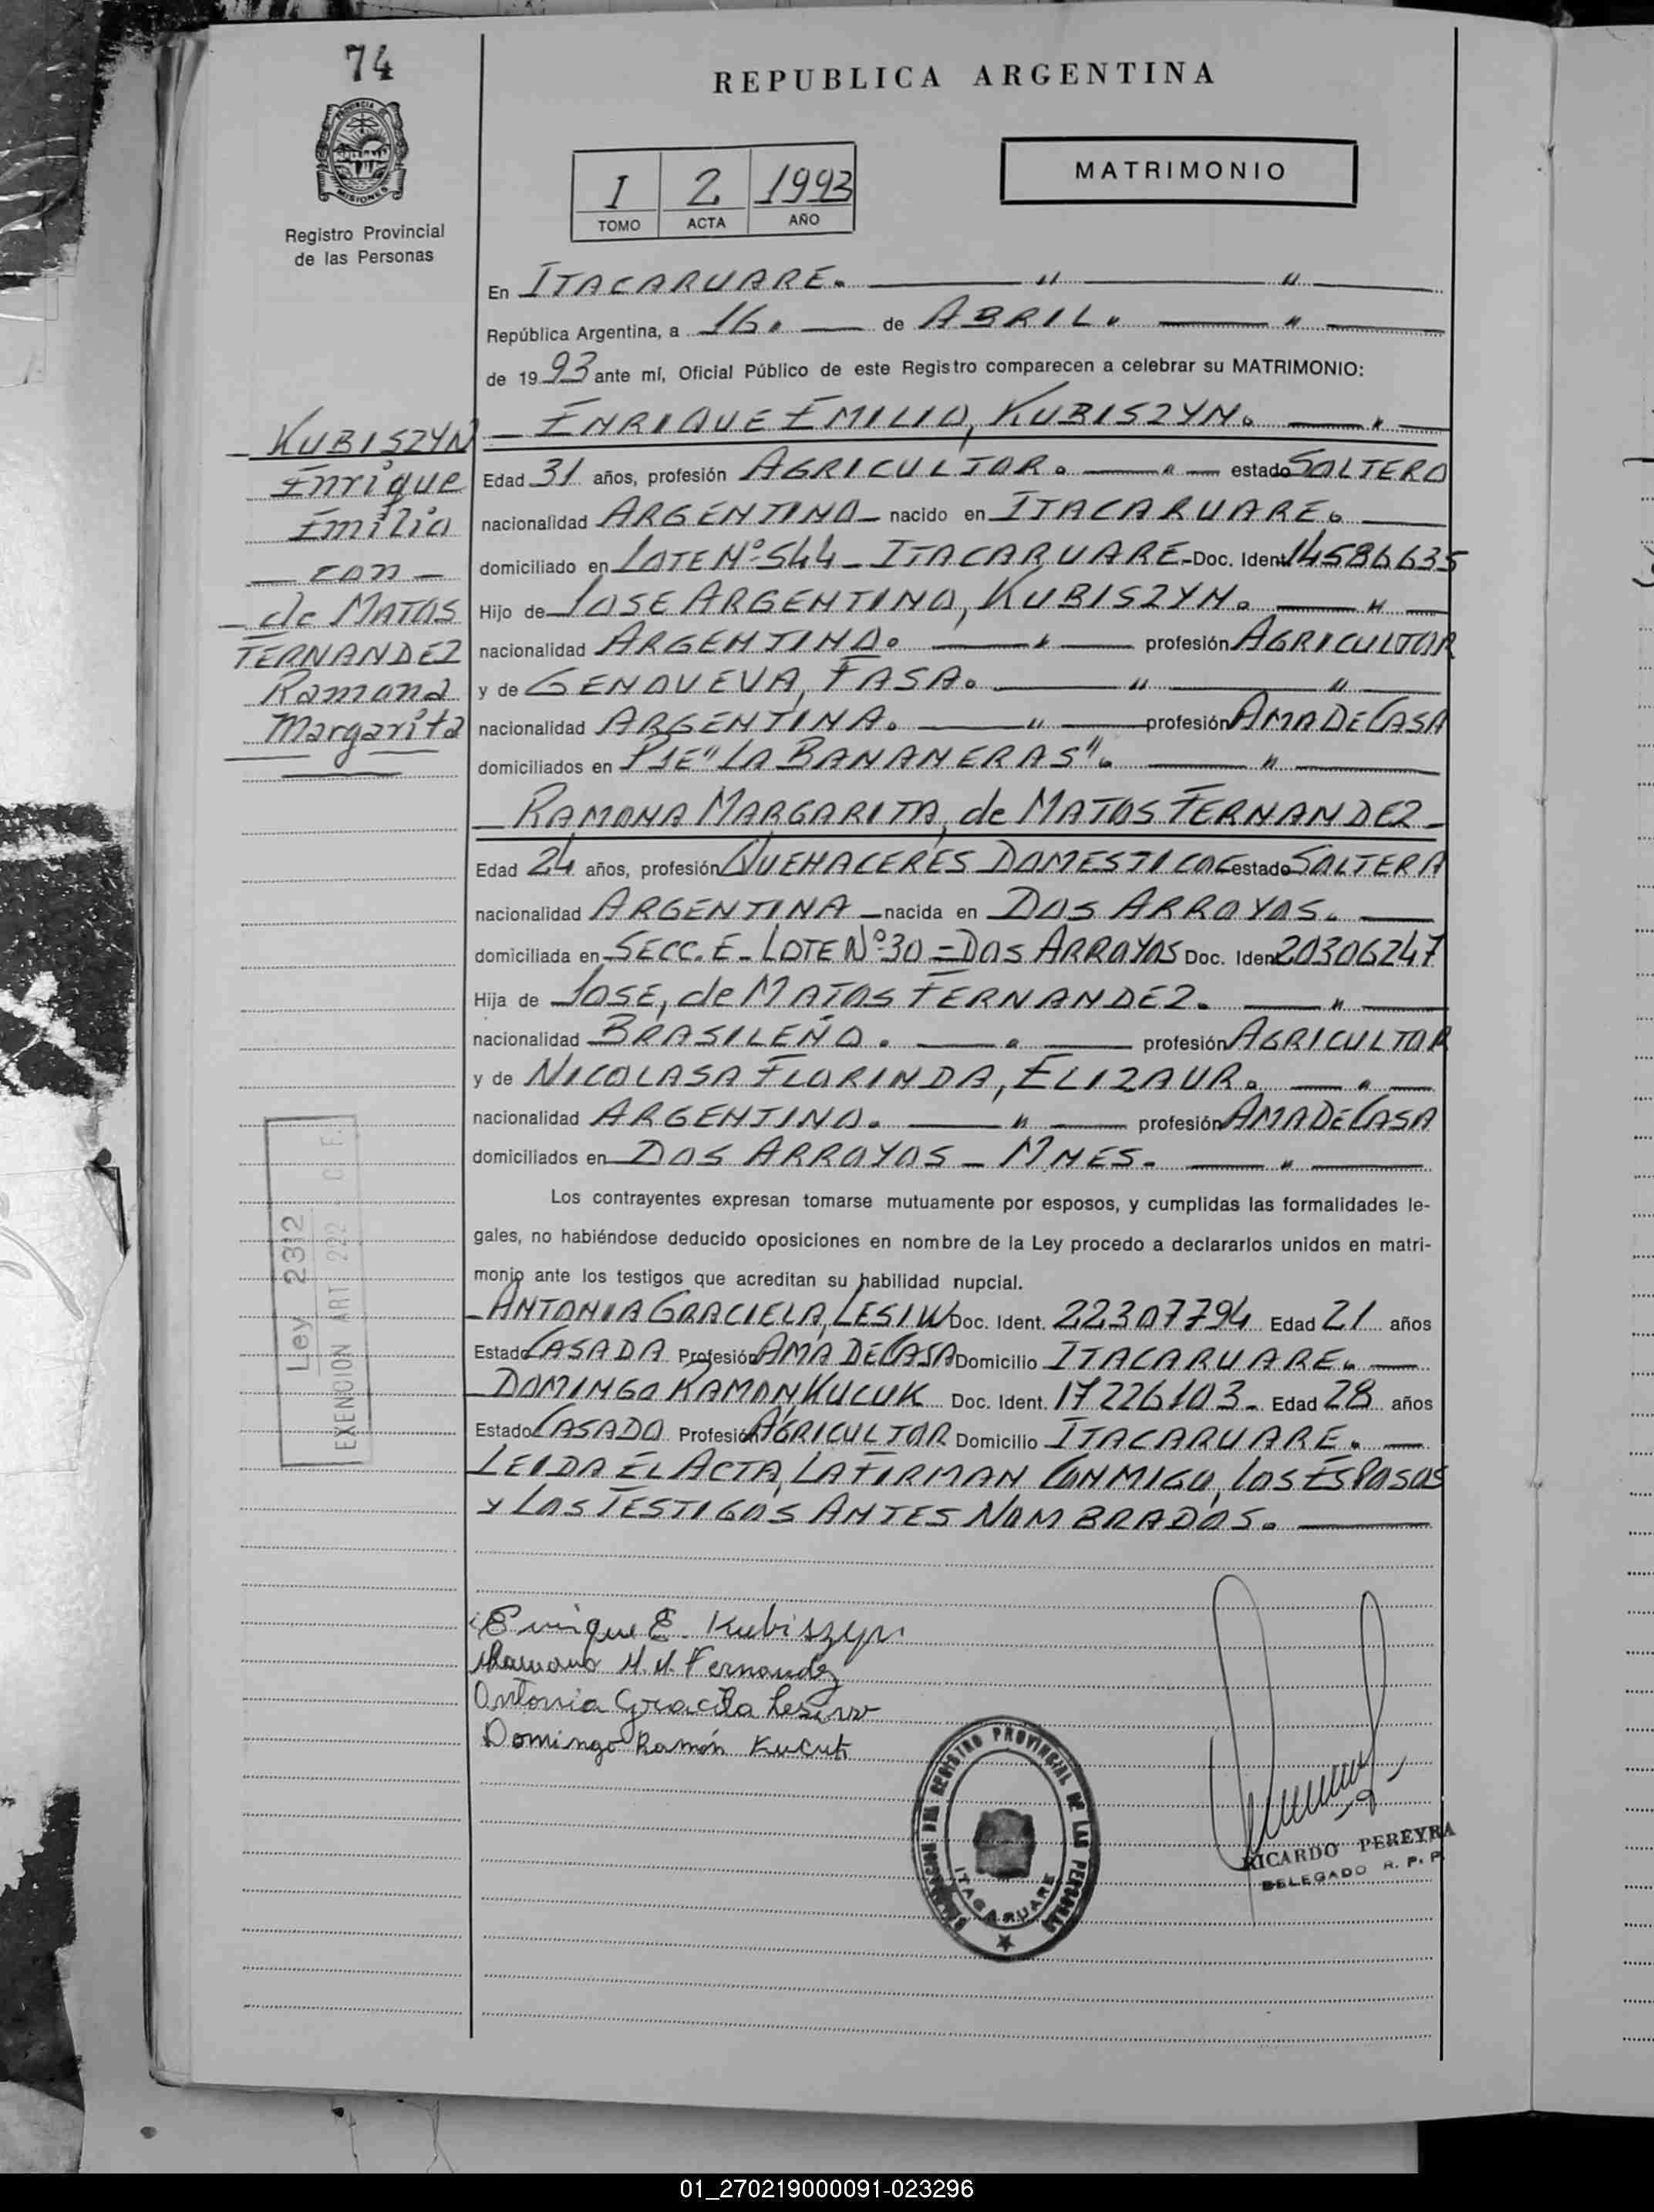 74
REPUBLICA ARGENTINA
PROVINCIA DE
MISIONES
Registro Provincial
de las Personas
MATRIMONIO
I 2 1993
TOMO ACTA AÑO
En ITACARUARE. " "
República Argentina, a 16. de ABRIL. "
de 1993 ante mí, Oficial Público de este Registro comparecen a celebrar su MATRIMONIO:
KUBISZYN
Enrique
Emilio
con
de MATOS
FERNANDEZ
Ramona
Margarita
ENRIQUE EMILIO, KUBISZYN. "
Edad 31 años, profesión AGRICULTOR. " estado SOLTERO
nacionalidad ARGENTINO nacido en ITACARUARE.
domiciliado en LOTE Nº 544 - ITACARUARE - Doc. Ident. 14586635
Hijo de JOSE ARGENTINO, KUBISZYN. "
nacionalidad ARGENTINO. " profesión AGRICULTOR
y de GENOVEVA, FASA. " "
nacionalidad ARGENTINA. " profesión AMA DE CASA
domiciliados en PJE "LA BANANERAS". "
RAMONA MARGARITA, de MATOS FERNANDEZ
Edad 24 años, profesión QUEHACERES DOMESTICOS estado SOLTERA
nacionalidad ARGENTINA nacida en DOS ARROYOS.
domiciliada en SECC. E - LOTE Nº 30 = DOS ARROYOS Doc. Ident. 20306247
Hija de JOSE, de MATOS FERNANDEZ. "
nacionalidad BRASILEÑO. " profesión AGRICULTOR
y de NICOLASA FLORINDA, ELIZAUR. "
nacionalidad ARGENTINA. " profesión AMA DE CASA
domiciliados en DOS ARROYOS - MNES. "
Los contrayentes expresan tomarse mutuamente por esposos, y cumplidas las formalidades le-
gales, no habiéndose deducido oposiciones en nombre de la Ley procedo a declararlos unidos en matri-
monio ante los testigos que acreditan su habilidad nupcial.
ANTONIA GRACIELA, LESIW Doc. Ident. 22307794 Edad 21 años
Estado CASADA Profesión AMA DE CASA Domicilio ITACARUARE.
DOMINGO RAMON KUCUK Doc. Ident. 17226103 - Edad 28 años
Estado CASADO Profesión AGRICULTOR Domicilio ITACARUARE.
LEIDA EL ACTA, LA FIRMAN CONMIGO, LOS ESPOSOS
Y LOS TESTIGOS ANTES NOMBRADOS.
Ley 2312
EXENCION ART 222 C F.
Enrique E. Kubiszyn
Ramona M. M. Fernandez
Antonia Graciela Lesiw
Domingo Ramón Kucuk
DEL REGISTRO PROVINCIAL DE LAS PERSONAS
ITACARUARE
RICARDO PEREYRA
DELEGADO R. P. P.
01_270219000091-023296